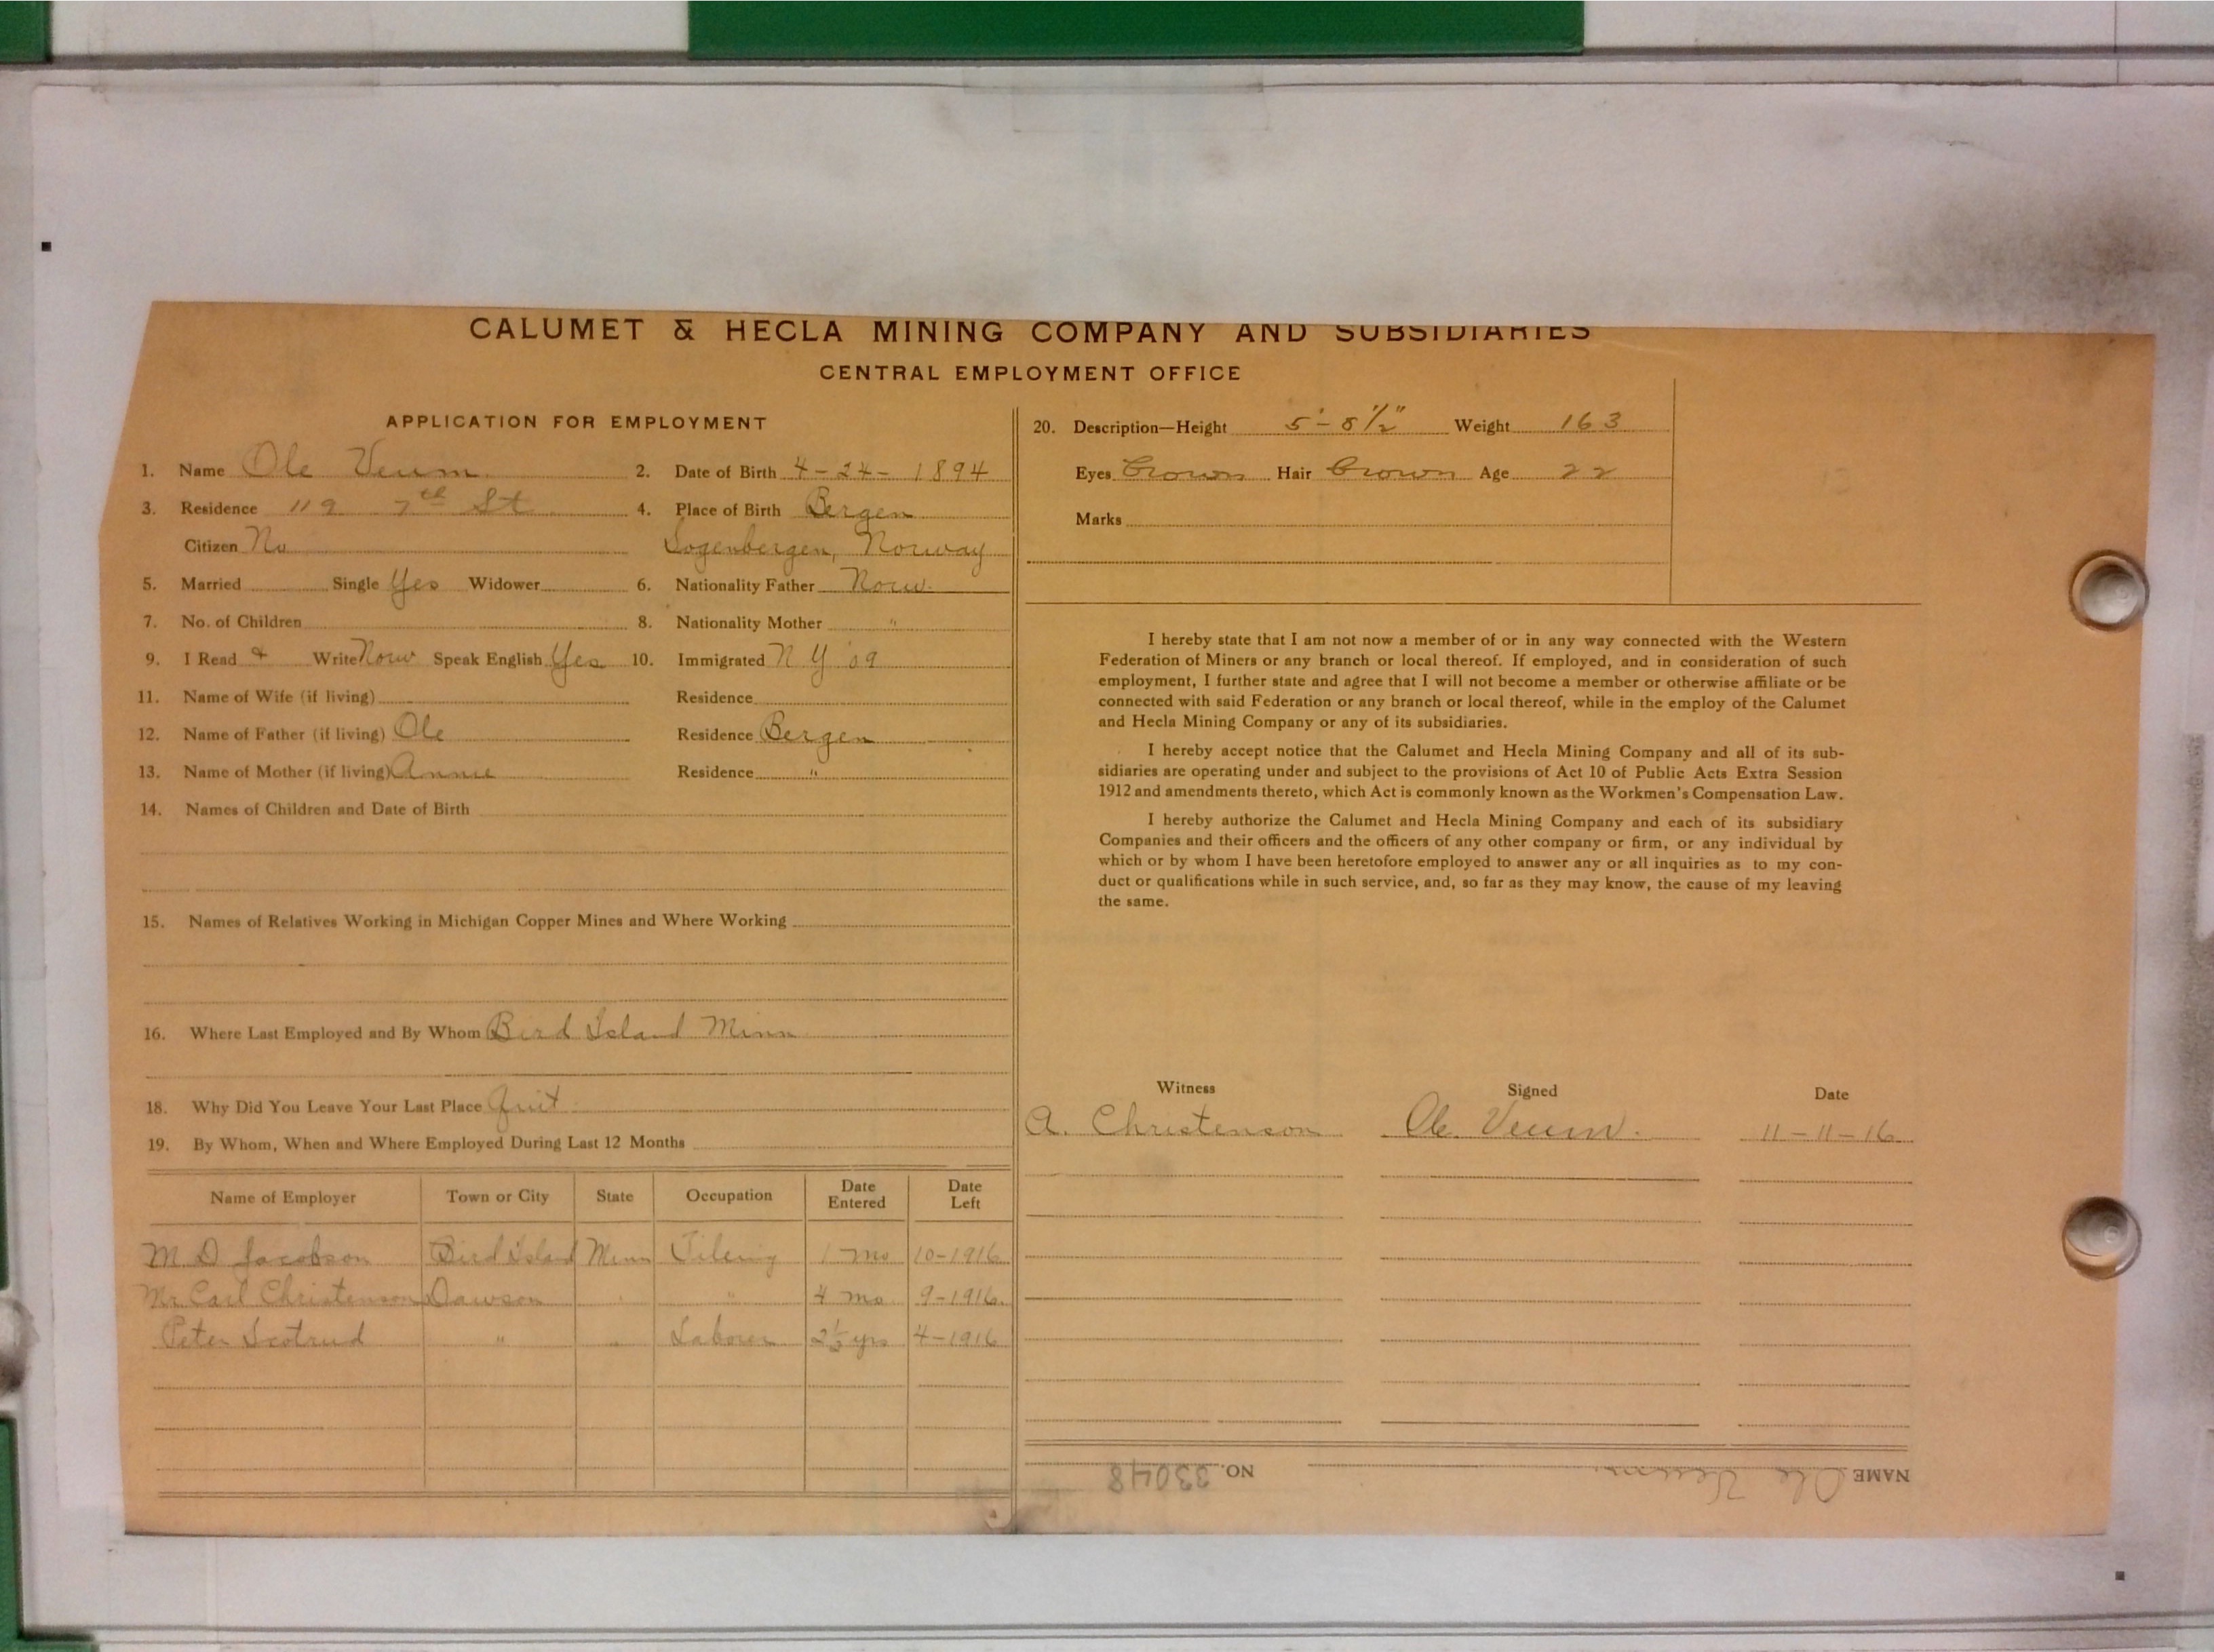 CALUMET & HECLA MINING COMPANY AND SUBSIDIARIES
CENTRAL EMPLOYMENT OFFICE
APPLICATION FOR EMPLOYMENT
1. Name Ole Veum 2. Date of Birth 4-24-1894
3. Residence 119 7th St 4. Place of Birth Bergen
Citizen No Sogenbergen, Norway
5. Married Single Yes Widower 6. Nationality Father Norw.
7. No. of Children 8. Nationality Mother "
9. I Read & Write Norw Speak English Yes 10. Immigrated N Y '09
11. Name of Wife (if living) Residence
12. Name of Father (if living) Ole Residence Bergen
13. Name of Mother (if living) Annie Residence "
14. Names of Children and Date of Birth
15. Names of Relatives Working in Michigan Copper Mines and Where Working
16. Where Last Employed and By Whom Bird Island Minn
18. Why Did You Leave Your Last Place Quit
19. By Whom, When and Where Employed During Last 12 Months
Name of Employer Town or City State Occupation Date Entered Date Left
M. D. Jacobson Bird Island Minn Tileing 1 mo 10-1916
Mr. Carl Christenson Dawson " " 4 mo 9-1916
Peter Scotrud " " Laborer 2 1/2 yrs 4-1916
20. Description—Height 5'-8 1/2" Weight 163
Eyes Brown Hair Brown Age 22
Marks
I hereby state that I am not now a member of or in any way connected with the Western
Federation of Miners or any branch or local thereof. If employed, and in consideration of such
employment, I further state and agree that I will not become a member or otherwise affiliate or be
connected with said Federation or any branch or local thereof, while in the employ of the Calumet
and Hecla Mining Company or any of its subsidiaries.
I hereby accept notice that the Calumet and Hecla Mining Company and all of its sub-
sidiaries are operating under and subject to the provisions of Act 10 of Public Acts Extra Session
1912 and amendments thereto, which Act is commonly known as the Workmen's Compensation Law.
I hereby authorize the Calumet and Hecla Mining Company and each of its subsidiary
Companies and their officers and the officers of any other company or firm, or any individual by
which or by whom I have been heretofore employed to answer any or all inquiries as to my con-
duct or qualifications while in such service, and, so far as they may know, the cause of my leaving
the same.
Witness Signed Date
A. Christenson Ole Veum. 11-11-16
NAME Ole Veum NO. 33048